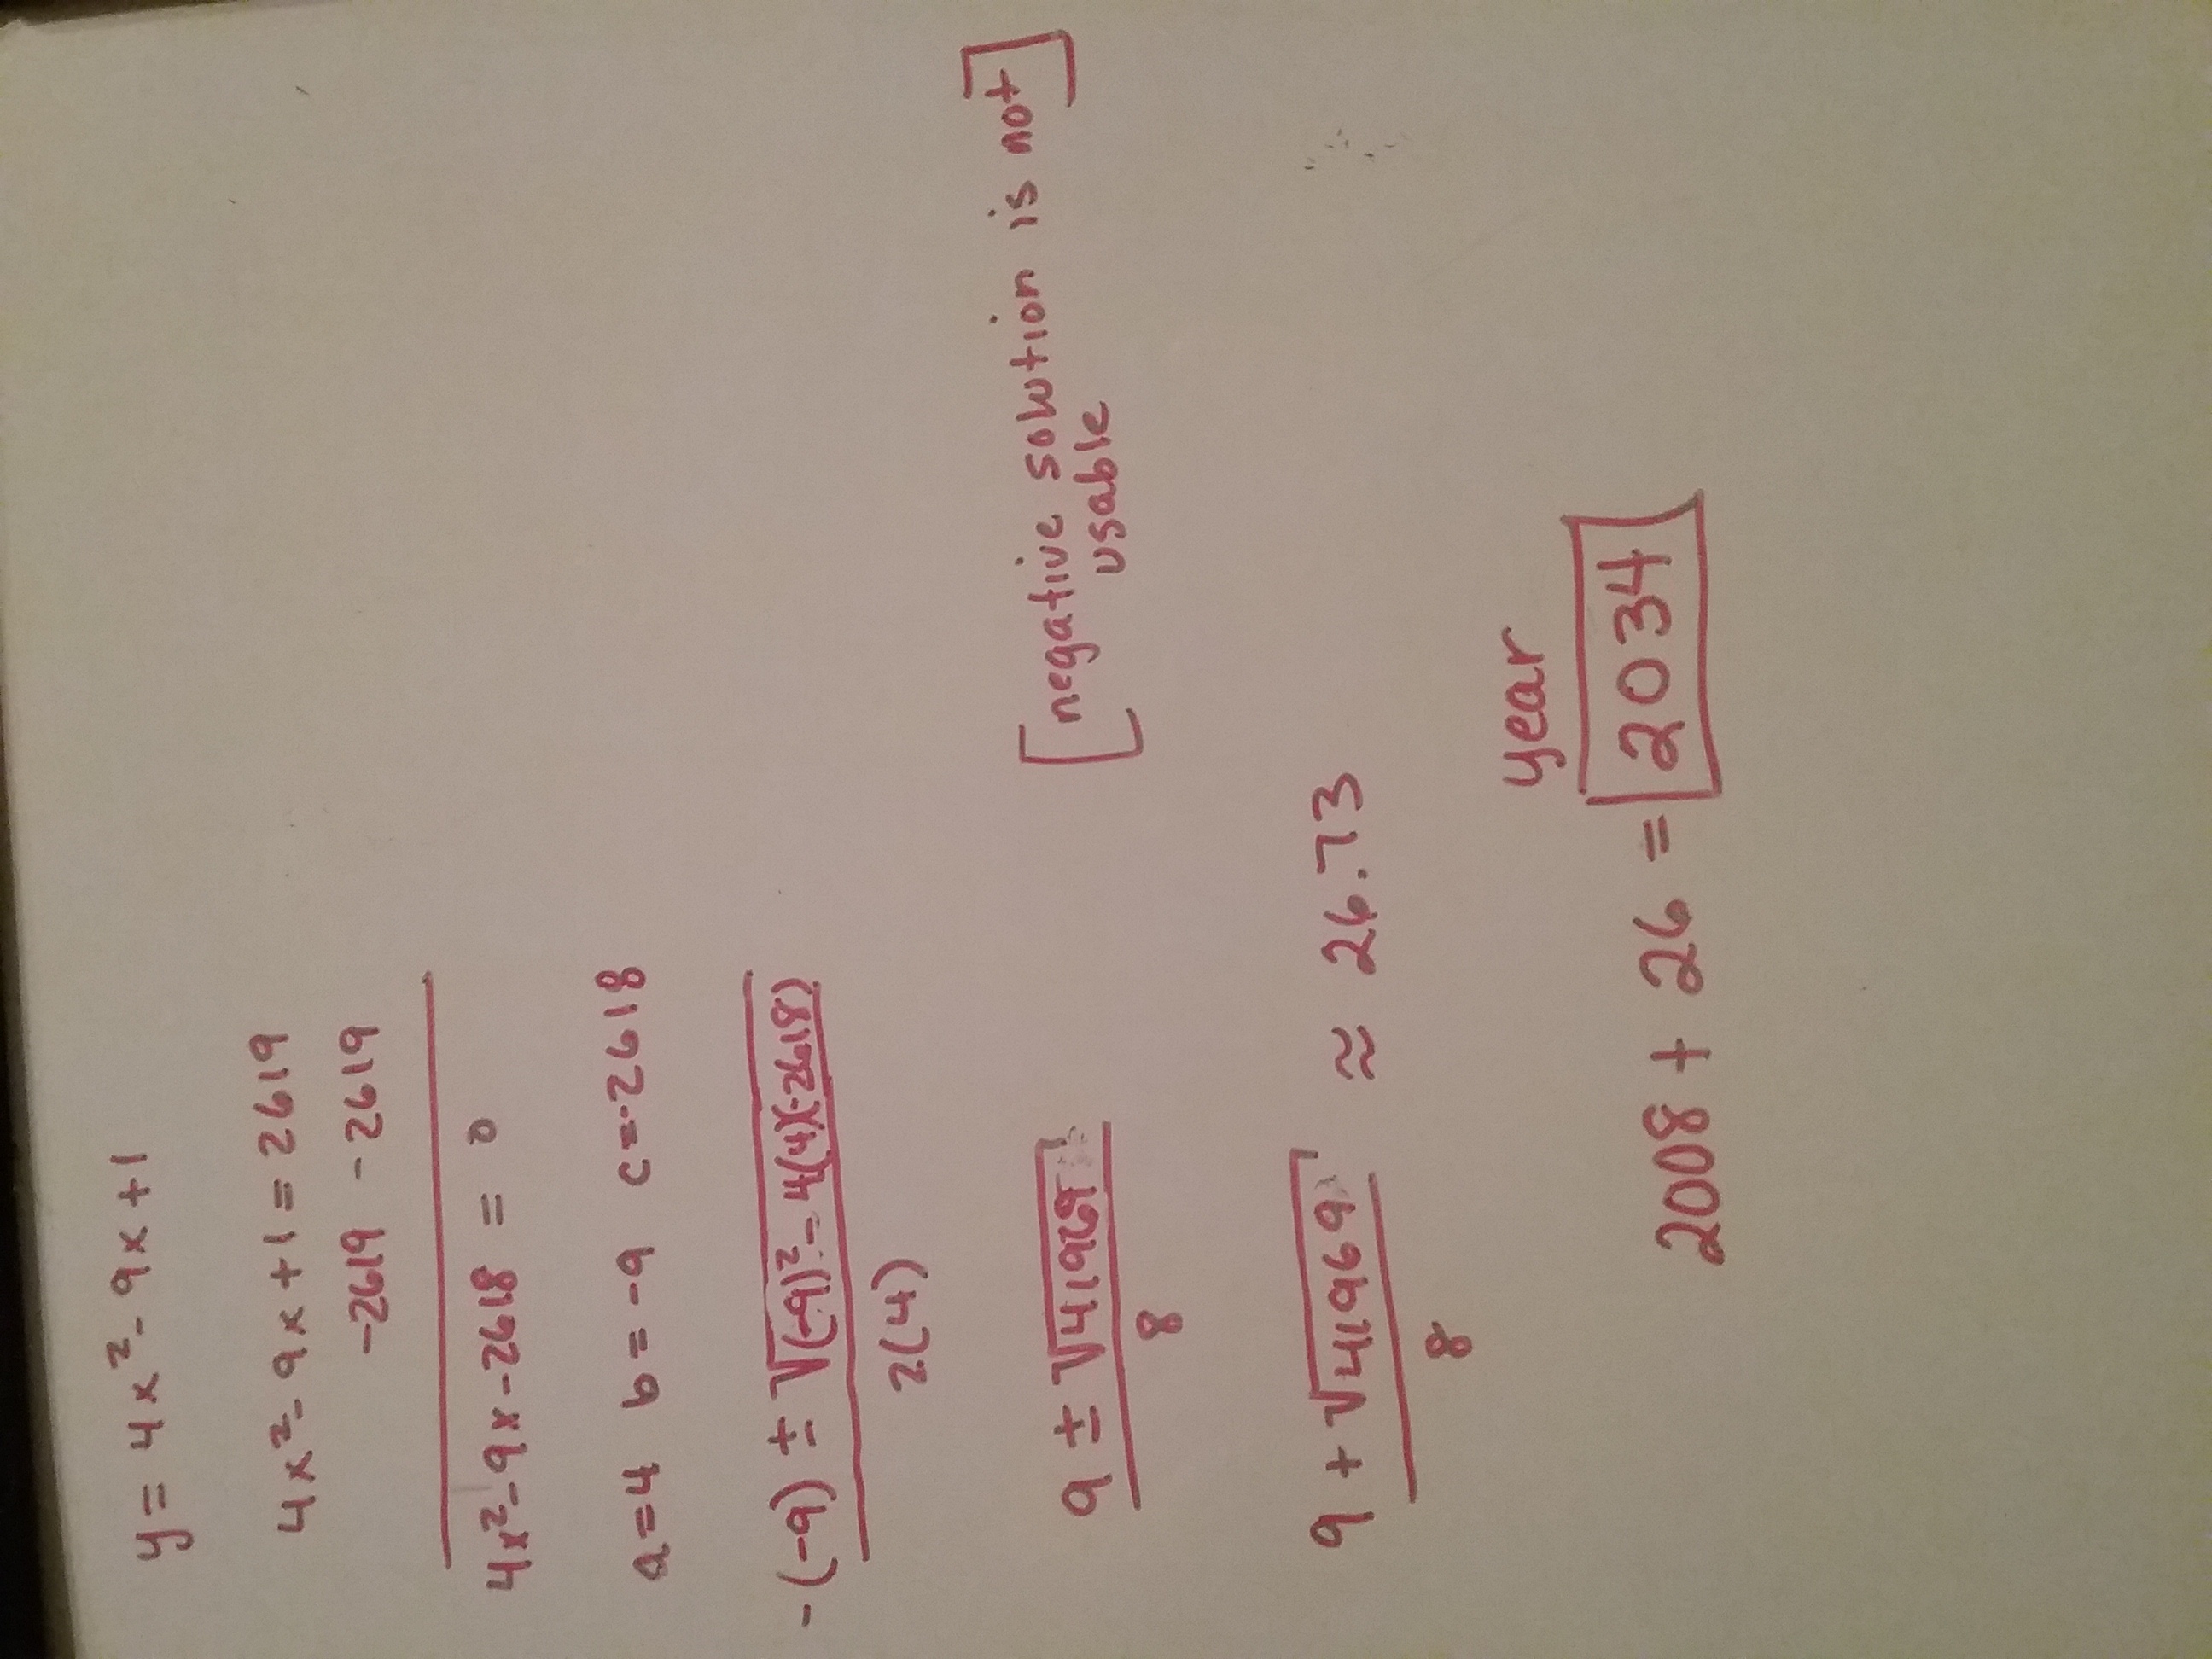 y = 4x² - 9x + 1
4x² - 9x + 1 = 2619
-2619 - 2619
4x² - 9x - 2618 = 0
a = 4 b = -9 c = -2618
-(-9) ± √(-9)² - 4(4)(-2618)
2(4)
9 ± √41969
8
[negative solution is not]
usable
9 + √41969 ≈ 26.73
8
year
2008 + 26 = 2034